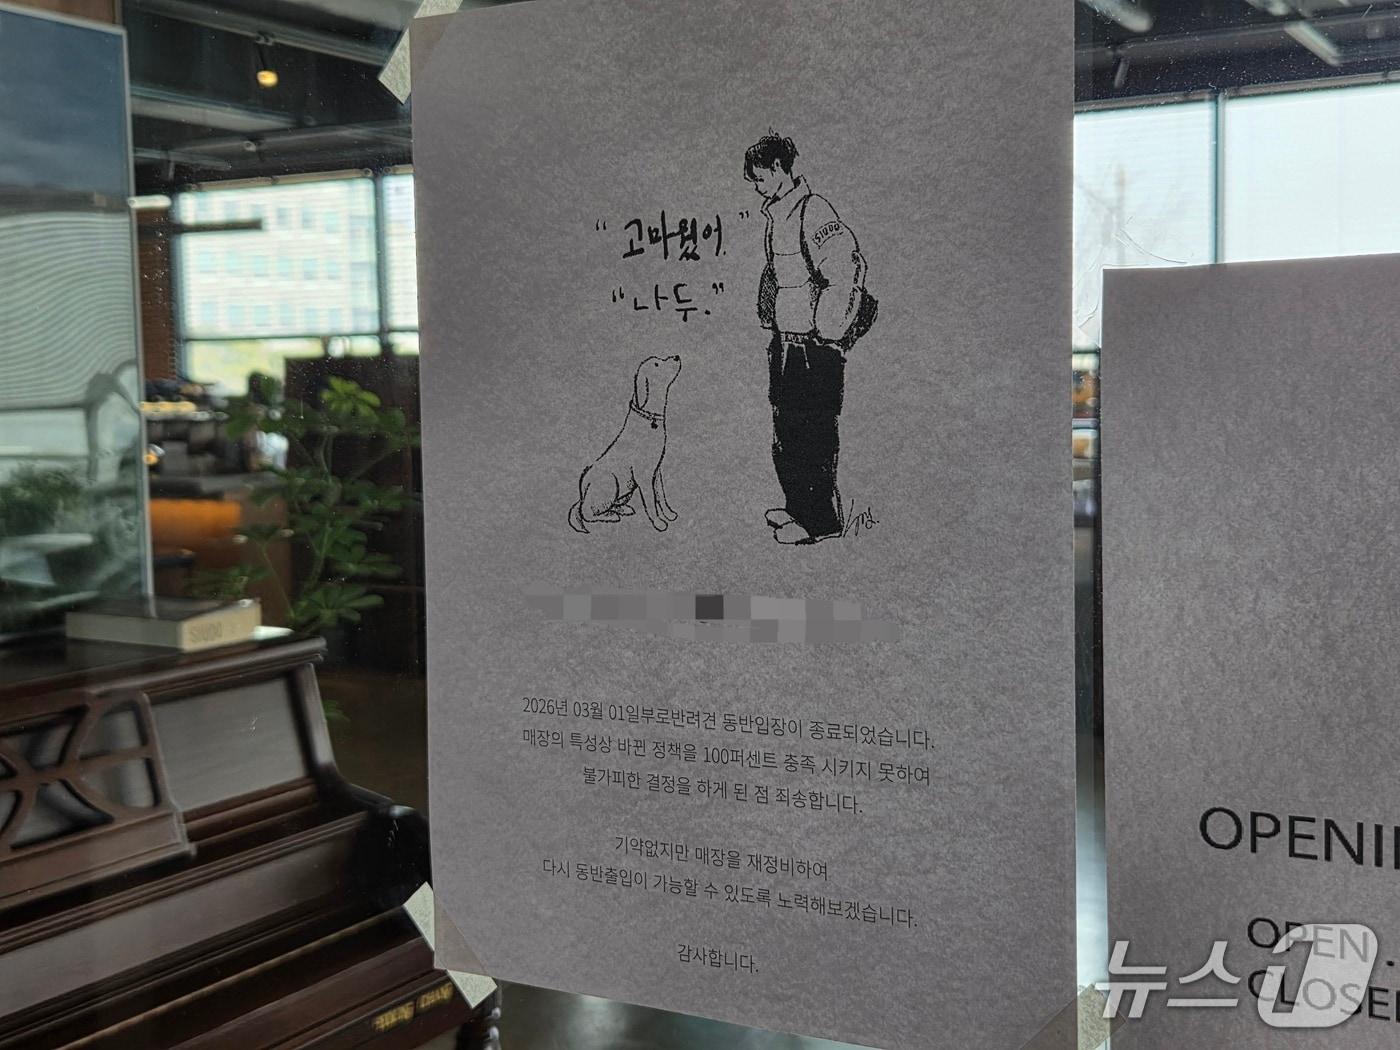 "고마웠어."
"나두."
SIUDO
2026년 03월 01일부로반려견 동반입장이 종료되었습니다.
매장의 특성상 바뀐 정책을 100퍼센트 충족 시키지 못하여
불가피한 결정을 하게 된 점 죄송합니다.
기약없지만 매장을 재정비하여
다시 동반출입이 가능할 수 있도록 노력해보겠습니다.
감사합니다.
OPEN
뉴스1